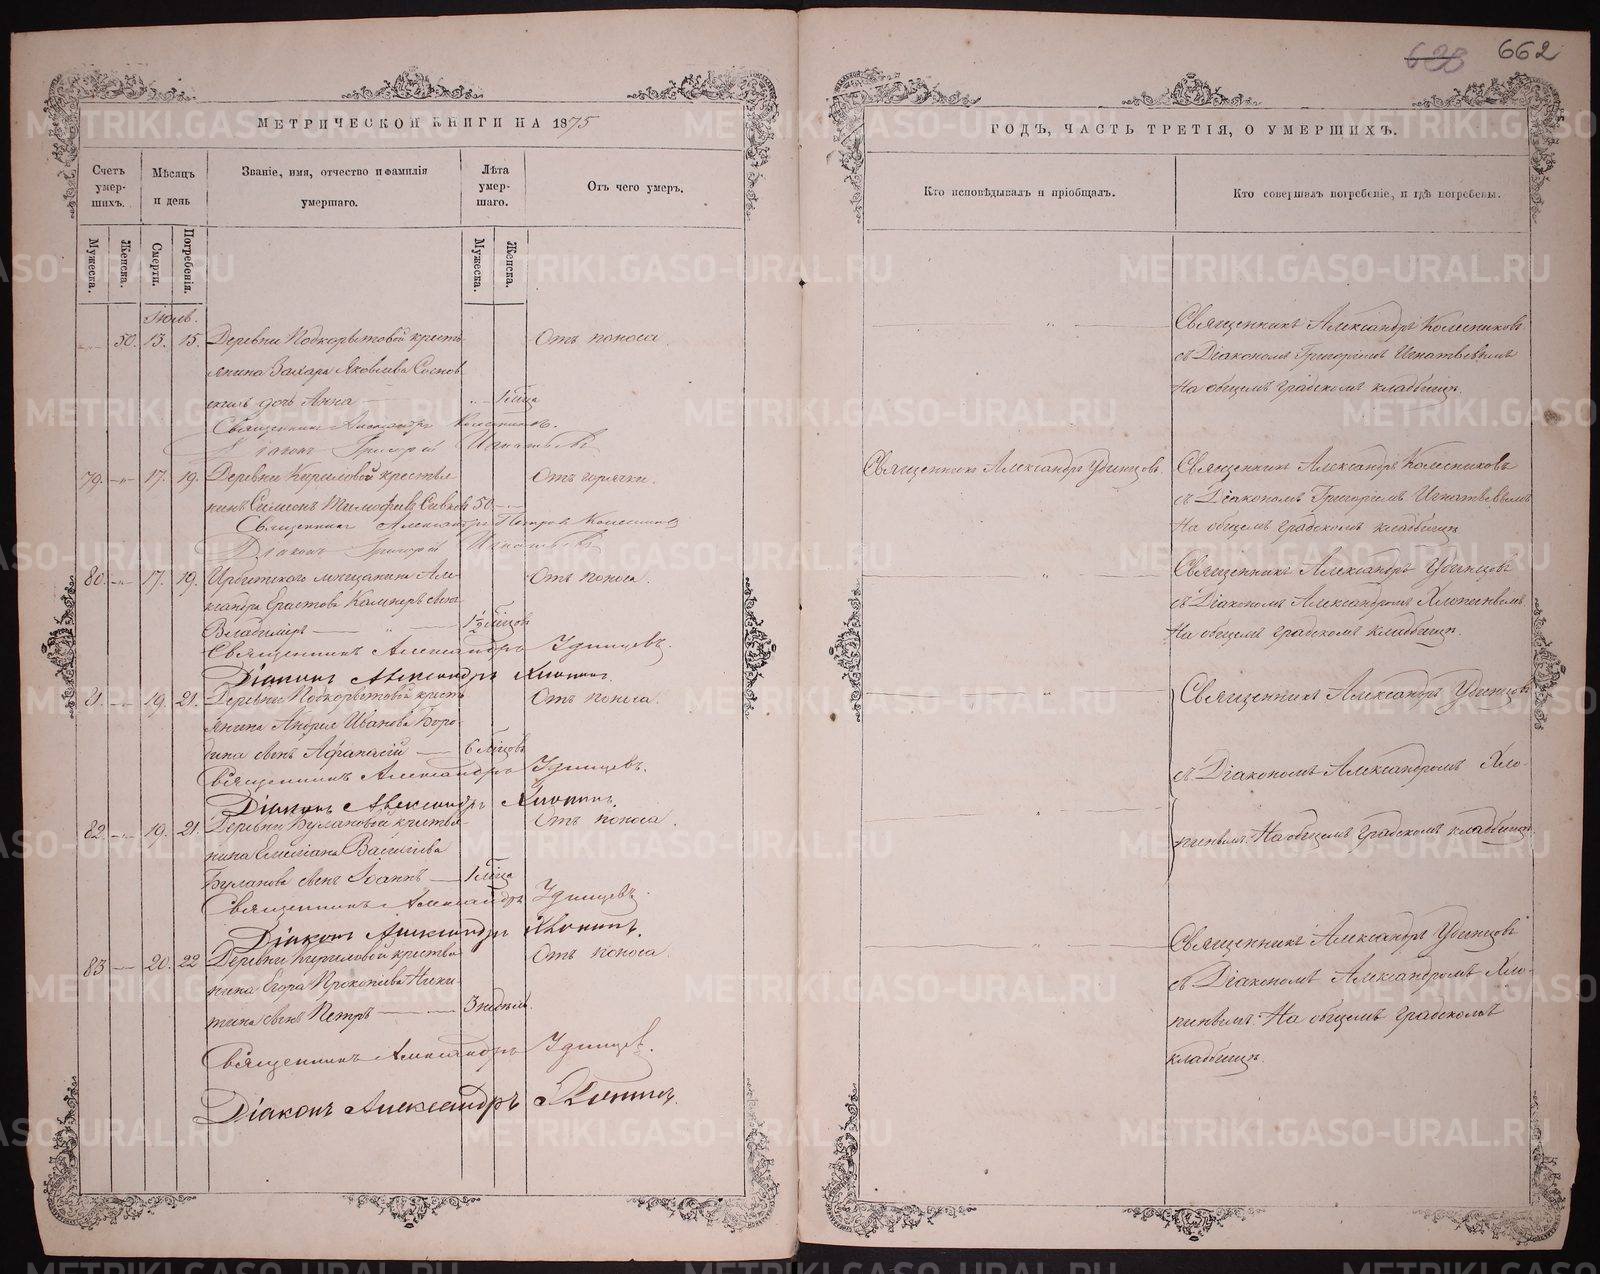 662
МЕТРИЧЕСКОЙ КНИГИ НА 1875
ГОДЪ, ЧАСТЬ ТРЕТІЯ, О УМЕРШИХЪ.
Счетъ умер-шихъ.
Мѣсяцъ и день
Званіе, имя, отчество и фамилія умершаго.
Лѣта умер-шаго.
Отъ чего умеръ.
Кто исповѣдывалъ и пріобщалъ.
Кто совершалъ погребеніе, и гдѣ погребены.
Мужеска.
Женска.
Смерти.
Погребенія.
Мужеска.
Женска.
Іюль.
50. 13. 15. Деревни Подкорытовой кресть
янина Захара Яковлева
дочь Анна 1 мѣсяца
Отъ поноса.
Священникъ Александръ Колесниковъ.
Діаконъ Григорій Игнатьевъ
Священникъ Александръ Колесниковъ
съ Діакономъ Григоріемъ Игнатьевымъ
На общемъ градскомъ кладбищѣ.
79. 17. 19. Деревни Кириловой крестья
нинъ Симеонъ Тимофеевъ 50.
Отъ горячки.
Священникъ Александръ Петровъ Колесников
Діаконъ Григорій Игнатьевъ
Священникъ Александръ Удинцовъ
Священникъ Александръ Колесниковъ
съ Діакономъ Григоріемъ Игнатьевымъ
На общемъ градскомъ кладбищѣ
80. 17. 19. Ирбитскаго мещанина Але-
ксандра Ерастова сынъ
Владиміръ 1½ мѣсяцовъ
Отъ поноса.
Священникъ Александръ Удинцевъ.
Діаконъ Александръ Хлопинъ.
Священникъ Александръ Удинцовъ
съ Діакономъ Александромъ Хлопинымъ.
На общемъ градскомъ кладбищѣ.
81. 19. 21. Деревни Подкорытовой кресть
янина Андрея Иванова Боро-
дина сынъ Афанасій 6 мѣсяцовъ
Отъ поноса.
Священникъ Александръ Удинцевъ.
Діаконъ Александръ Хлопинъ.
Священникъ Александръ Удинцовъ
съ Діакономъ Александромъ Хло-
пинымъ. На общемъ градскомъ кладбищѣ.
82. 19. 21. Деревни Булановой крестья-
нина Емеліана Васильева
Буланова сынъ Іоаннъ 1 мѣсяца
Отъ поноса.
Священникъ Александръ Удинцевъ.
Діаконъ Александръ Хлопинъ.
83 20. 22 Деревни Кириловой крестья-
нина Егора Прокопьева Ники-
тина сынъ Петръ 3 недѣль.
Отъ поноса.
Священникъ Александръ Удинцев.
Діаконъ Александръ Хлопинъ.
Священникъ Александръ Удинцовъ
съ Діакономъ Александромъ Хло-
пинымъ. На общемъ градскомъ
кладбищѣ.
METRIKI.GASO-URAL.RU